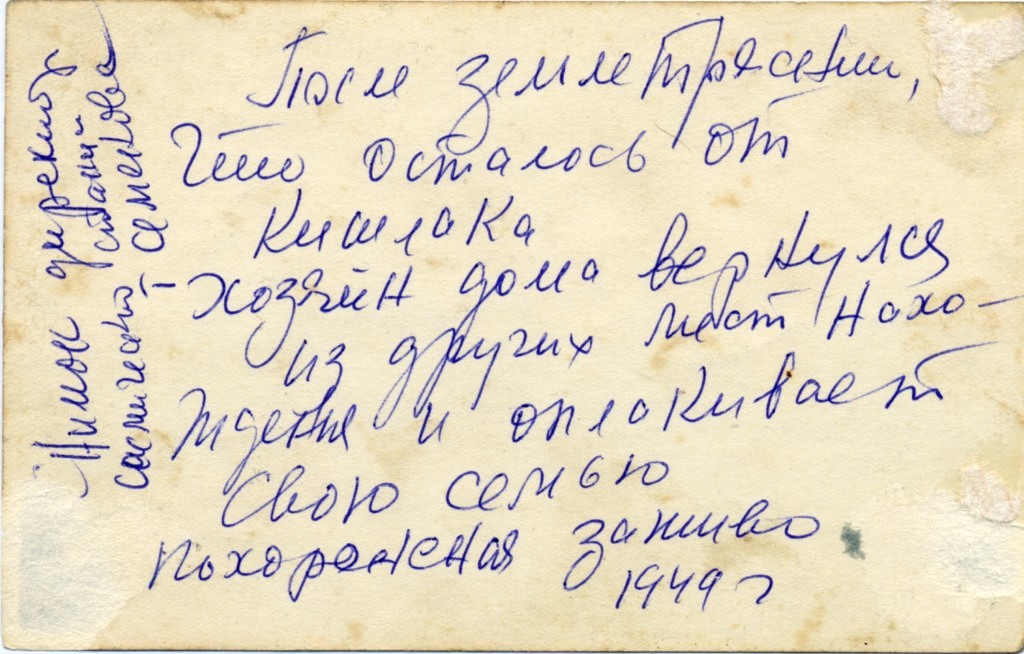 После землетрясении,
Что осталось от
кишлака
- хозяин дома вернулся
из других мест нахо-
ждения и оплакивает
свою семью
похороненная заживо
1949 г
Снимок
станции
сейсмической Семенова